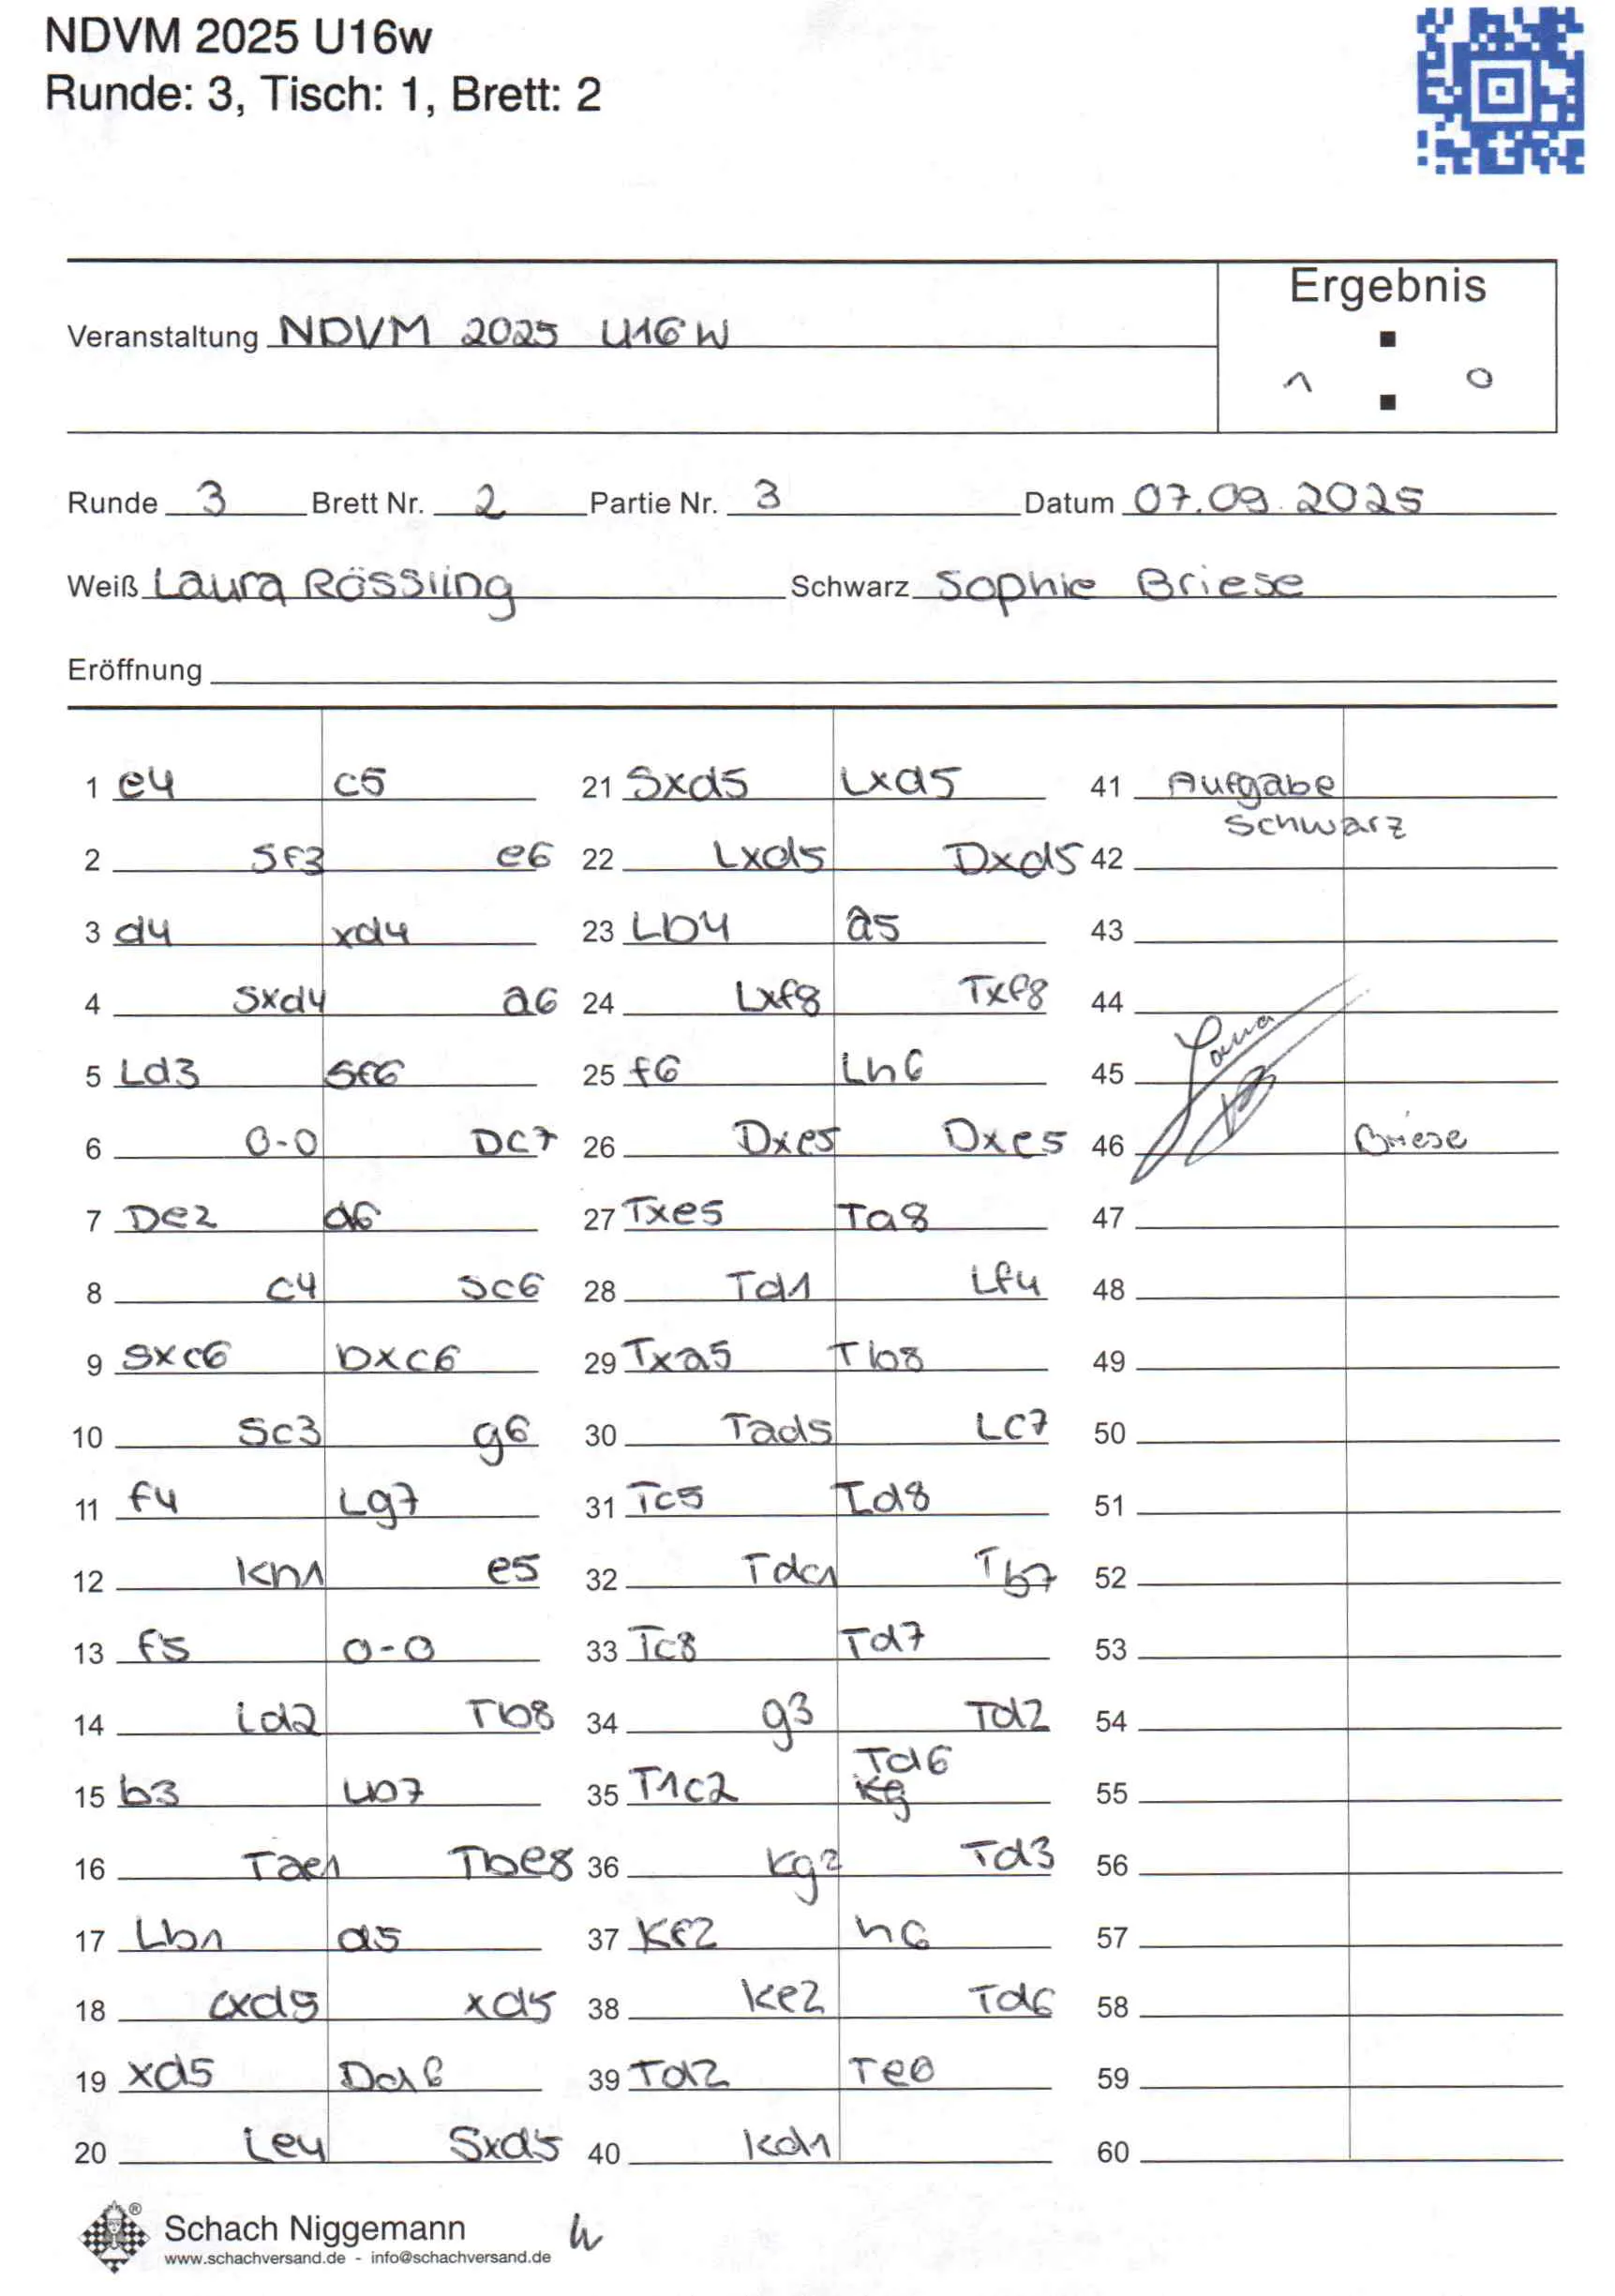 NDVM 2025 U16w
Runde: 3, Tisch: 1, Brett: 2
Ergebnis
Veranstaltung NDVM 2025 U16W
1 : 0
Runde 3 Brett Nr. 2 Partie Nr. 3 Datum 07.09.2025
Weiß Laura Rössling Schwarz Sophie Briese
Eröffnung
1 e4 c5
2 Sf3 e6
3 d4 xd4
4 Sxd4 a6
5 Ld3 Sf6
6 0-0 Dc7
7 De2 d6
8 c4 Sc6
9 Sxc6 bxc6
10 Sc3 g6
11 f4 Lg7
12 Kh1 e5
13 f5 0-0
14 Ld2 Tb8
15 b3 Lb7
16 Tae1 Tbe8
17 Lb1 d5
18 cxd5 xd5
19 xd5 Dd6
20 Le4 Sxd5
21 Sxd5 Lxd5
22 Lxd5 Dxd5
23 Lb4 a5
24 Lxf8 Txf8
25 f6 Lh6
26 Dxe5 Dxe5
27 Txe5 Ta8
28 Td1 Lf4
29 Txa5 Tb8
30 Tad5 Lc7
31 Tc5 Td8
32 Tdc1 Tb7
33 Tc8 Td7
34 g3 Td2
35 T1c2 Td6
36 Kg2 Td3
37 Kf2 h6
38 Ke2 Td6
39 Td2 Te6
40 Kd1
41 Aufgabe
Schwarz
42
43
44
45 Laura
46 Briese
47
48
49
50
51
52
53
54
55
56
57
58
59
60
Schach Niggemann
www.schachversand.de - info@schachversand.de